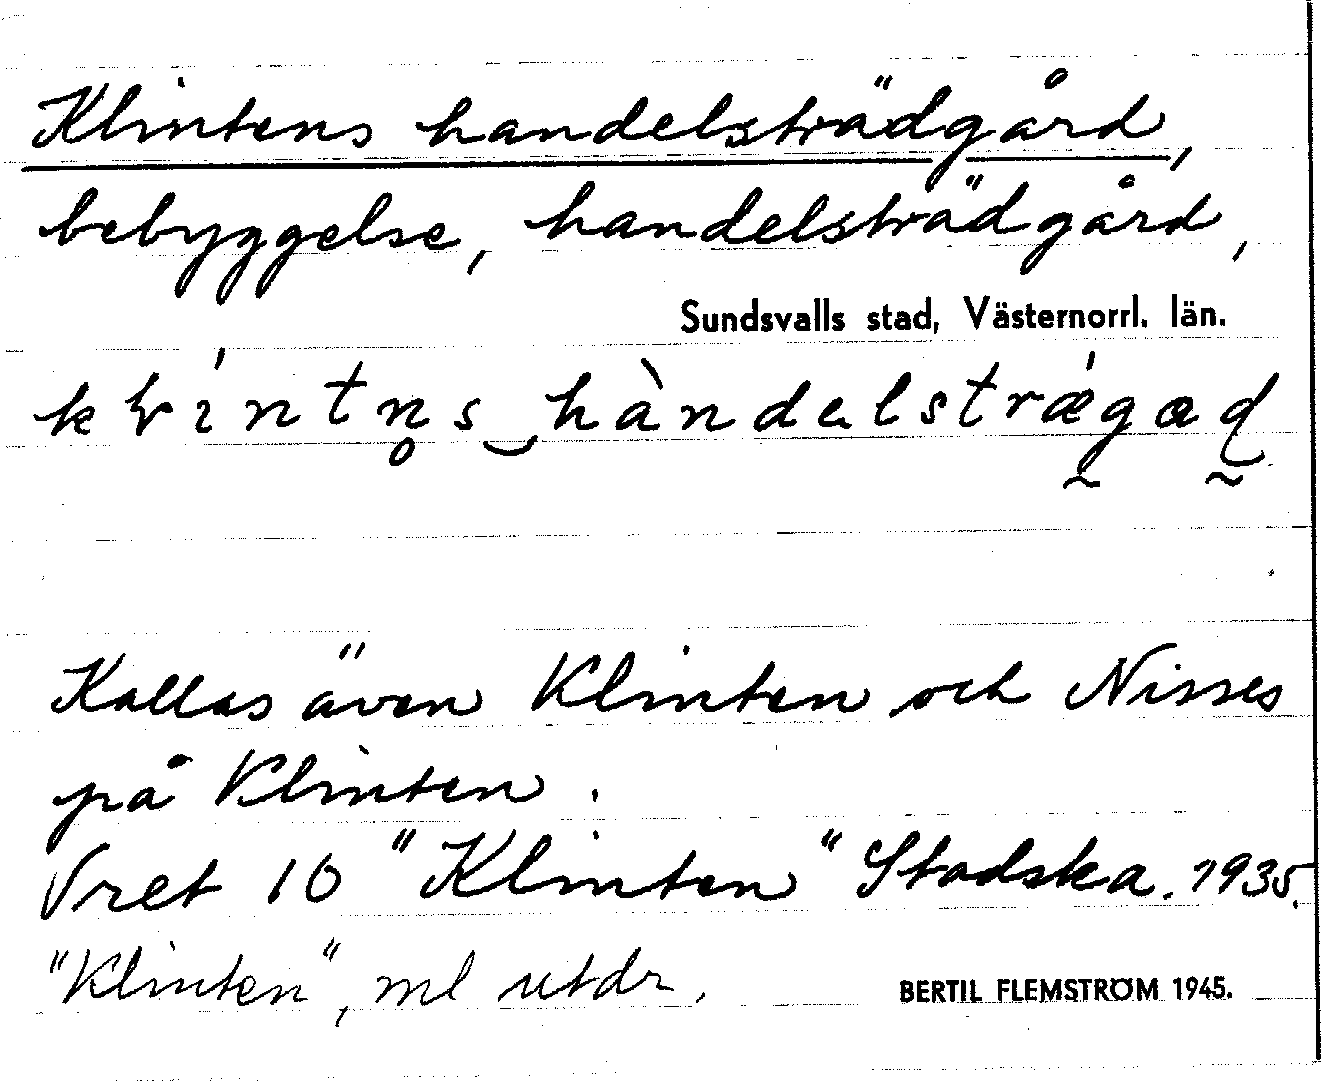 Klintens handelsträdgård,
bebyggelse, handelsträdgård,
Sundsvalls stad, Västernorrl. län.
Kallas även Klinten och Nisses
på Klinten.
Vret 10 "Klinten" Stadska. 1935.
"Klinten", ml utdr,
BERTIL FLEMSTRÖM 1945.